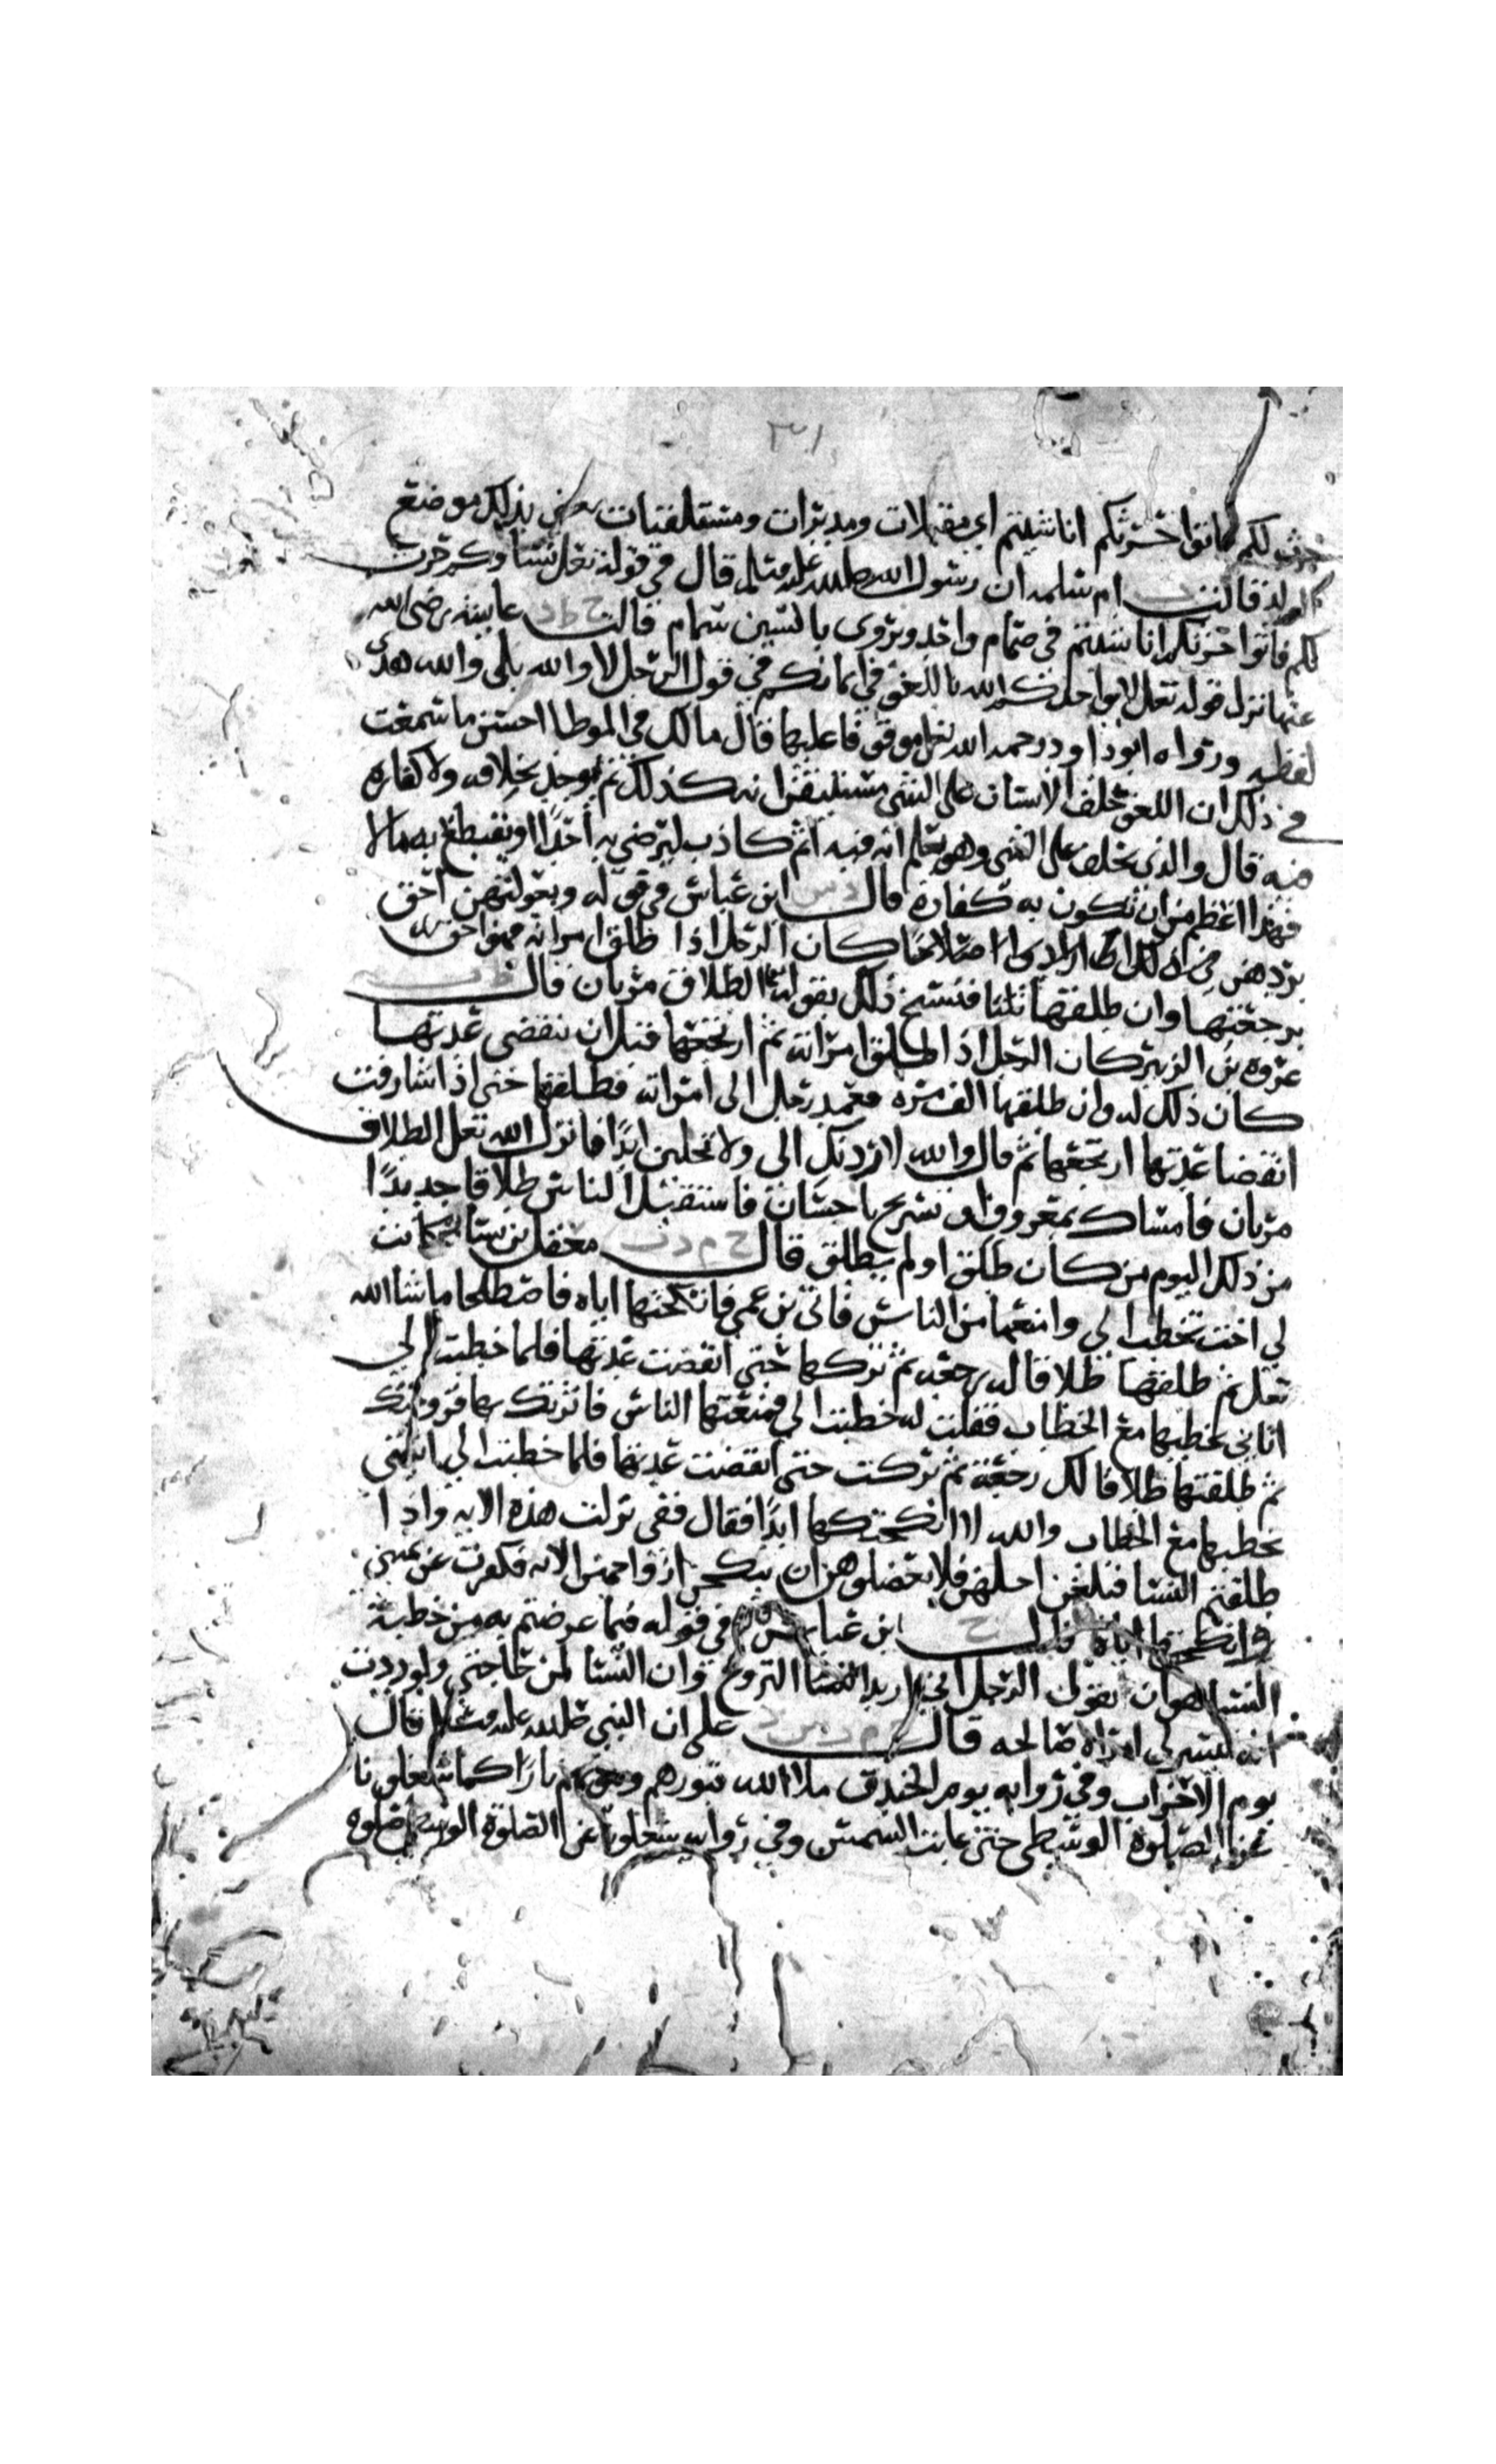 ٣١
حرث لكم فاتوا حرثكم انا شيتم اي مقبلات ومدبرات ومستلقيات يعني بذلك موضع
الولد قالت ت ام سلمه ان رسول الله صلى الله عليه وسلم قال في قوله تعالى نساوكم حرث
لكم فاتوا حرثكم انا شيتم في صمام واحد ويروى بالسين سمام قالت خ ط د عايشه رضي الله
عنها نزل قوله تعالى لا يواخذكم الله باللغو في ايمانكم في قول الرجل لا والله بلى والله هذى
لفظه ورواه ابو داود رحمه الله تعالى موقوفا عليها قال مالك في الموطا احسن ما سمعت
في ذلك ان اللغو حلف الانسان على الشي مستيقنا انه كذلك ثم يوجد بخلافه ولا كفاره
فيه قال والذي يحلف على الشي وهو يعلم انه فيه اثم كاذب ليرضي به احدا او يقتطع به مالا
فهذا اعظم من ان تكون به كفارة قال د س ابن عباس في قوله وبعولتهن احق
بردهن في ذلك ان ارادوا اصلاحا كان الرجل اذا طلق امراته فهو احق
برجعتها وان طلقها ثلثا فنسخ ذلك بقوله تعالى الطلاق مرتان قال ط ت
عروه بن الزبير كان الرجل اذا طلق امراته ثم ارتجعها قبل ان تنقضي عدتها
كان ذلك له وان طلقها الف مره فعمد رجل الى امراته فطلقها حتى اذا شارفت
انقضا عدتها ارتجعها ثم قال والله لا اردك الي ولا تحلين ابدا فانزل الله تعالى الطلاق
مرتان فامساك بمعروف او تسريح باحسان فاستقبل الناس طلاقا جديدا
من ذلك اليوم من كان طلق او لم يطلق قال خ م د ت معقل بن يسار كانت
لي اخت تخطب الي وامنعها من الناس فاتى بن عمي فانكحتها اياه فاصطلحا ما شا الله
تعالى ثم طلقها طلاقا له رجعه ثم تركها حتى انقضت عدتها فلما خطبت الي
اتاني يخطبها مع الخطاب فقلت له خطبت الي فمنعتها الناس فاثرتك بها فزوجتك
ثم طلقتها طلاقا لك رجعة ثم تركت حتى انقضت عدتها فلما خطبت الي اتيتني
تخطبها مع الخطاب والله لا انكحتكها ابدا فقال ففي نزلت هذه الايه واذا
طلقتم النسا فبلغن اجلهن فلا تعضلوهن ان ينكحن ازواجهن الايه فكفرت عن يميني
وانكحتها اياه قال خ ابن عباس في قوله فيما عرضتم به من خطبة
النسا هو ان يقول الرجل اني اريد التزوج وان النسا لمن حاجتي ولوددت
انه تيسر لي امراة صالحه قال خ م د س على ان النبي صلى الله عليه وسلم قال
يوم الاحزاب وفي روايه يوم الخندق ملا الله قبورهم وبيوتهم نارا كما شغلونا
عن الصلوة الوسطى حتى غابت الشمس وفي روايه شغلونا عن الصلوة الوسطى صلوه